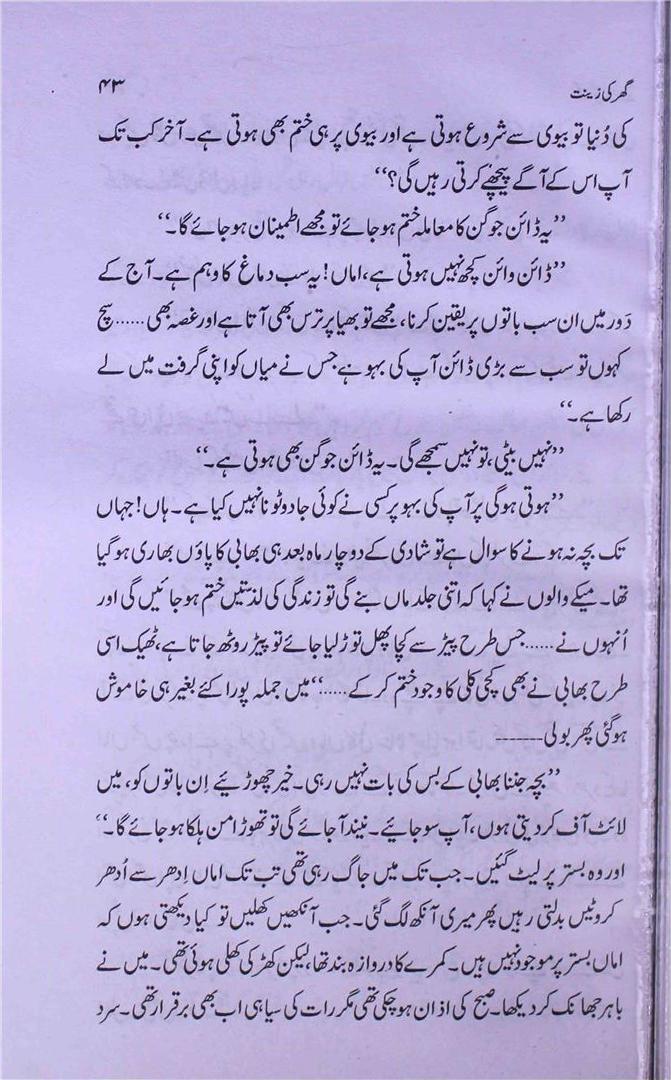 گھر کی زینت
۴۳
کی دُنیا تو بیوی سے شروع ہوتی ہے اور بیوی پر ہی ختم بھی ہوتی ہے۔ آخر کب تک
آپ اس کے آگے پیچھے کرتی رہیں گی؟‘‘
’’یہ ڈائن جوگن کا معاملہ ختم ہو جائے تو مجھے اطمینان ہو جائے گا۔‘‘
’’ڈائن وائن کچھ نہیں ہوتی ہے، اماں! یہ سب دماغ کا وہم ہے۔ آج کے
دَور میں ان سب باتوں پر یقین کرنا، مجھے تو بھیا پر ترس بھی آتا ہے اور غصہ بھی...... سچ
کہوں تو سب سے بڑی ڈائن آپ کی بہو ہے جس نے میاں کو اپنی گرفت میں لے
رکھا ہے۔‘‘
’’نہیں بیٹی، تو نہیں سمجھے گی۔ یہ ڈائن جوگن بھی ہوتی ہے۔‘‘
’’ہوتی ہوگی پر آپ کی بہو پر کسی نے کوئی جادو ٹونا نہیں کیا ہے۔ ہاں! جہاں
تک بچہ نہ ہونے کا سوال ہے تو شادی کے دو چار ماہ بعد ہی بھابی کا پاؤں بھاری ہو گیا
تھا۔ میکے والوں نے کہا کہ اتنی جلد ماں بنے گی تو زندگی کی لذتیں ختم ہو جائیں گی اور
اُنہوں نے...... جس طرح پیڑ سے کچا پھل توڑ لیا جائے تو پیڑ روٹھ جاتا ہے، ٹھیک اسی
طرح بھابی نے بھی کچی کلی کا وجود ختم کر کے.....‘‘ میں جملہ پورا کئے بغیر ہی خاموش
ہو گئی پھر بولی ------
’’بچہ جننا بھابی کے بس کی بات نہیں رہی۔ خیر چھوڑیئے اِن باتوں کو، میں
لائٹ آف کر دیتی ہوں، آپ سو جائیے۔ نیند آ جائے گی تو تھوڑا من ہلکا ہو جائے گا۔‘‘
اور وہ بستر پر لیٹ گئیں۔ جب تک میں جاگ رہی تھی تب تک اماں اِدھر سے اُدھر
کروٹیں بدلتی رہیں پھر میری آنکھ لگ گئی۔ جب آنکھیں کھلیں تو کیا دیکھتی ہوں کہ
اماں بستر پر موجود نہیں ہیں۔ کمرے کا دروازہ بند تھا، لیکن کھڑکی کھلی ہوئی تھی۔ میں نے
باہر جھانک کر دیکھا۔ صبح کی اذان ہو چکی تھی مگر رات کی سیاہی اب بھی برقرار تھی۔ سرد